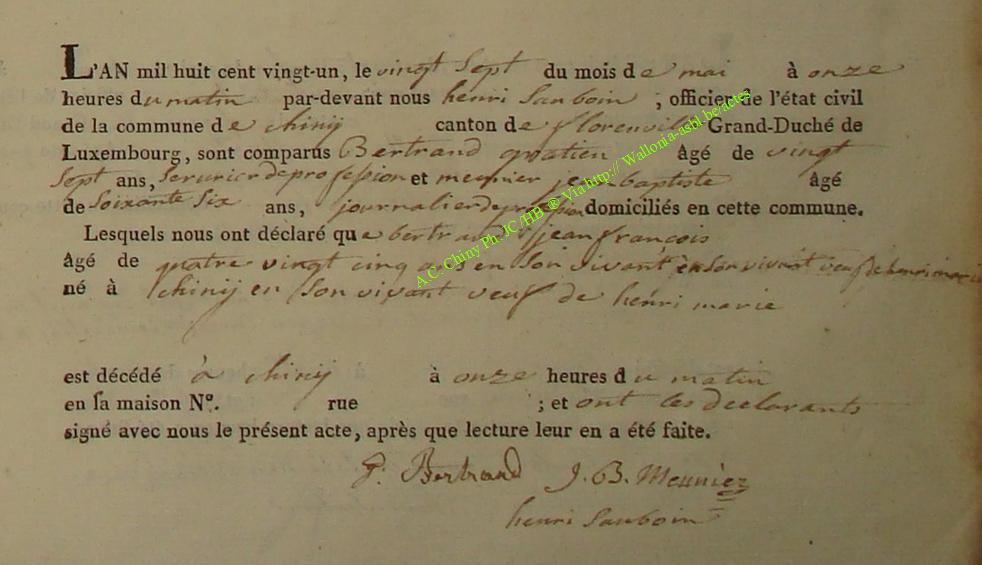 L'AN mil huit cent vingt-un, le vingt sept du mois de mai à onze
heures du matin par-devant nous henri Sauboin ; officier de l'état civil
de la commune de chiny canton de florenville Grand-Duché de
Luxembourg, sont comparus Bertrand gratien âgé de vingt
sept ans, Serurier de profession et meunier jean baptiste âgé
de Soixante Six ans, journalier de profession domiciliés en cette commune.
Lesquels nous ont déclaré que bertrand jean françois
âgé de quatre vingt cinq ans en son vivant en son vivant veuf de henri marie
né à chiny en son vivant veuf de henri marie
est décédé à chiny à onze heures du matin
en sa maison N°. rue ; et ont les declarants
signé avec nous le présent acte, après que lecture leur en a été faite.
Bertrand J. B. Meunier
henri Sauboin
A.C. Chiny Ph. JC /HB ® Via http:// Wallonia-asbl.be/actes